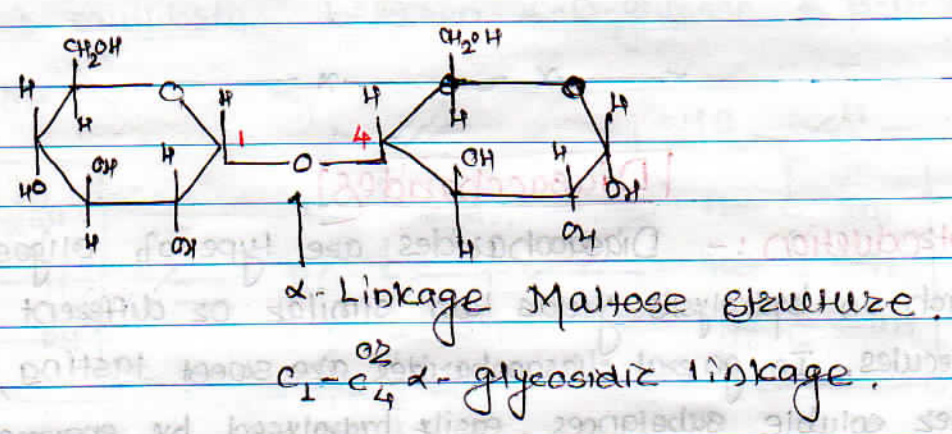 CH2OH CH2OH
H O H H O H
H 1 4 H
OH H O OH H
HO OH
H OH H OH
α-Linkage Maltose structure.
or
C1-C4 α-glycosidic linkage.